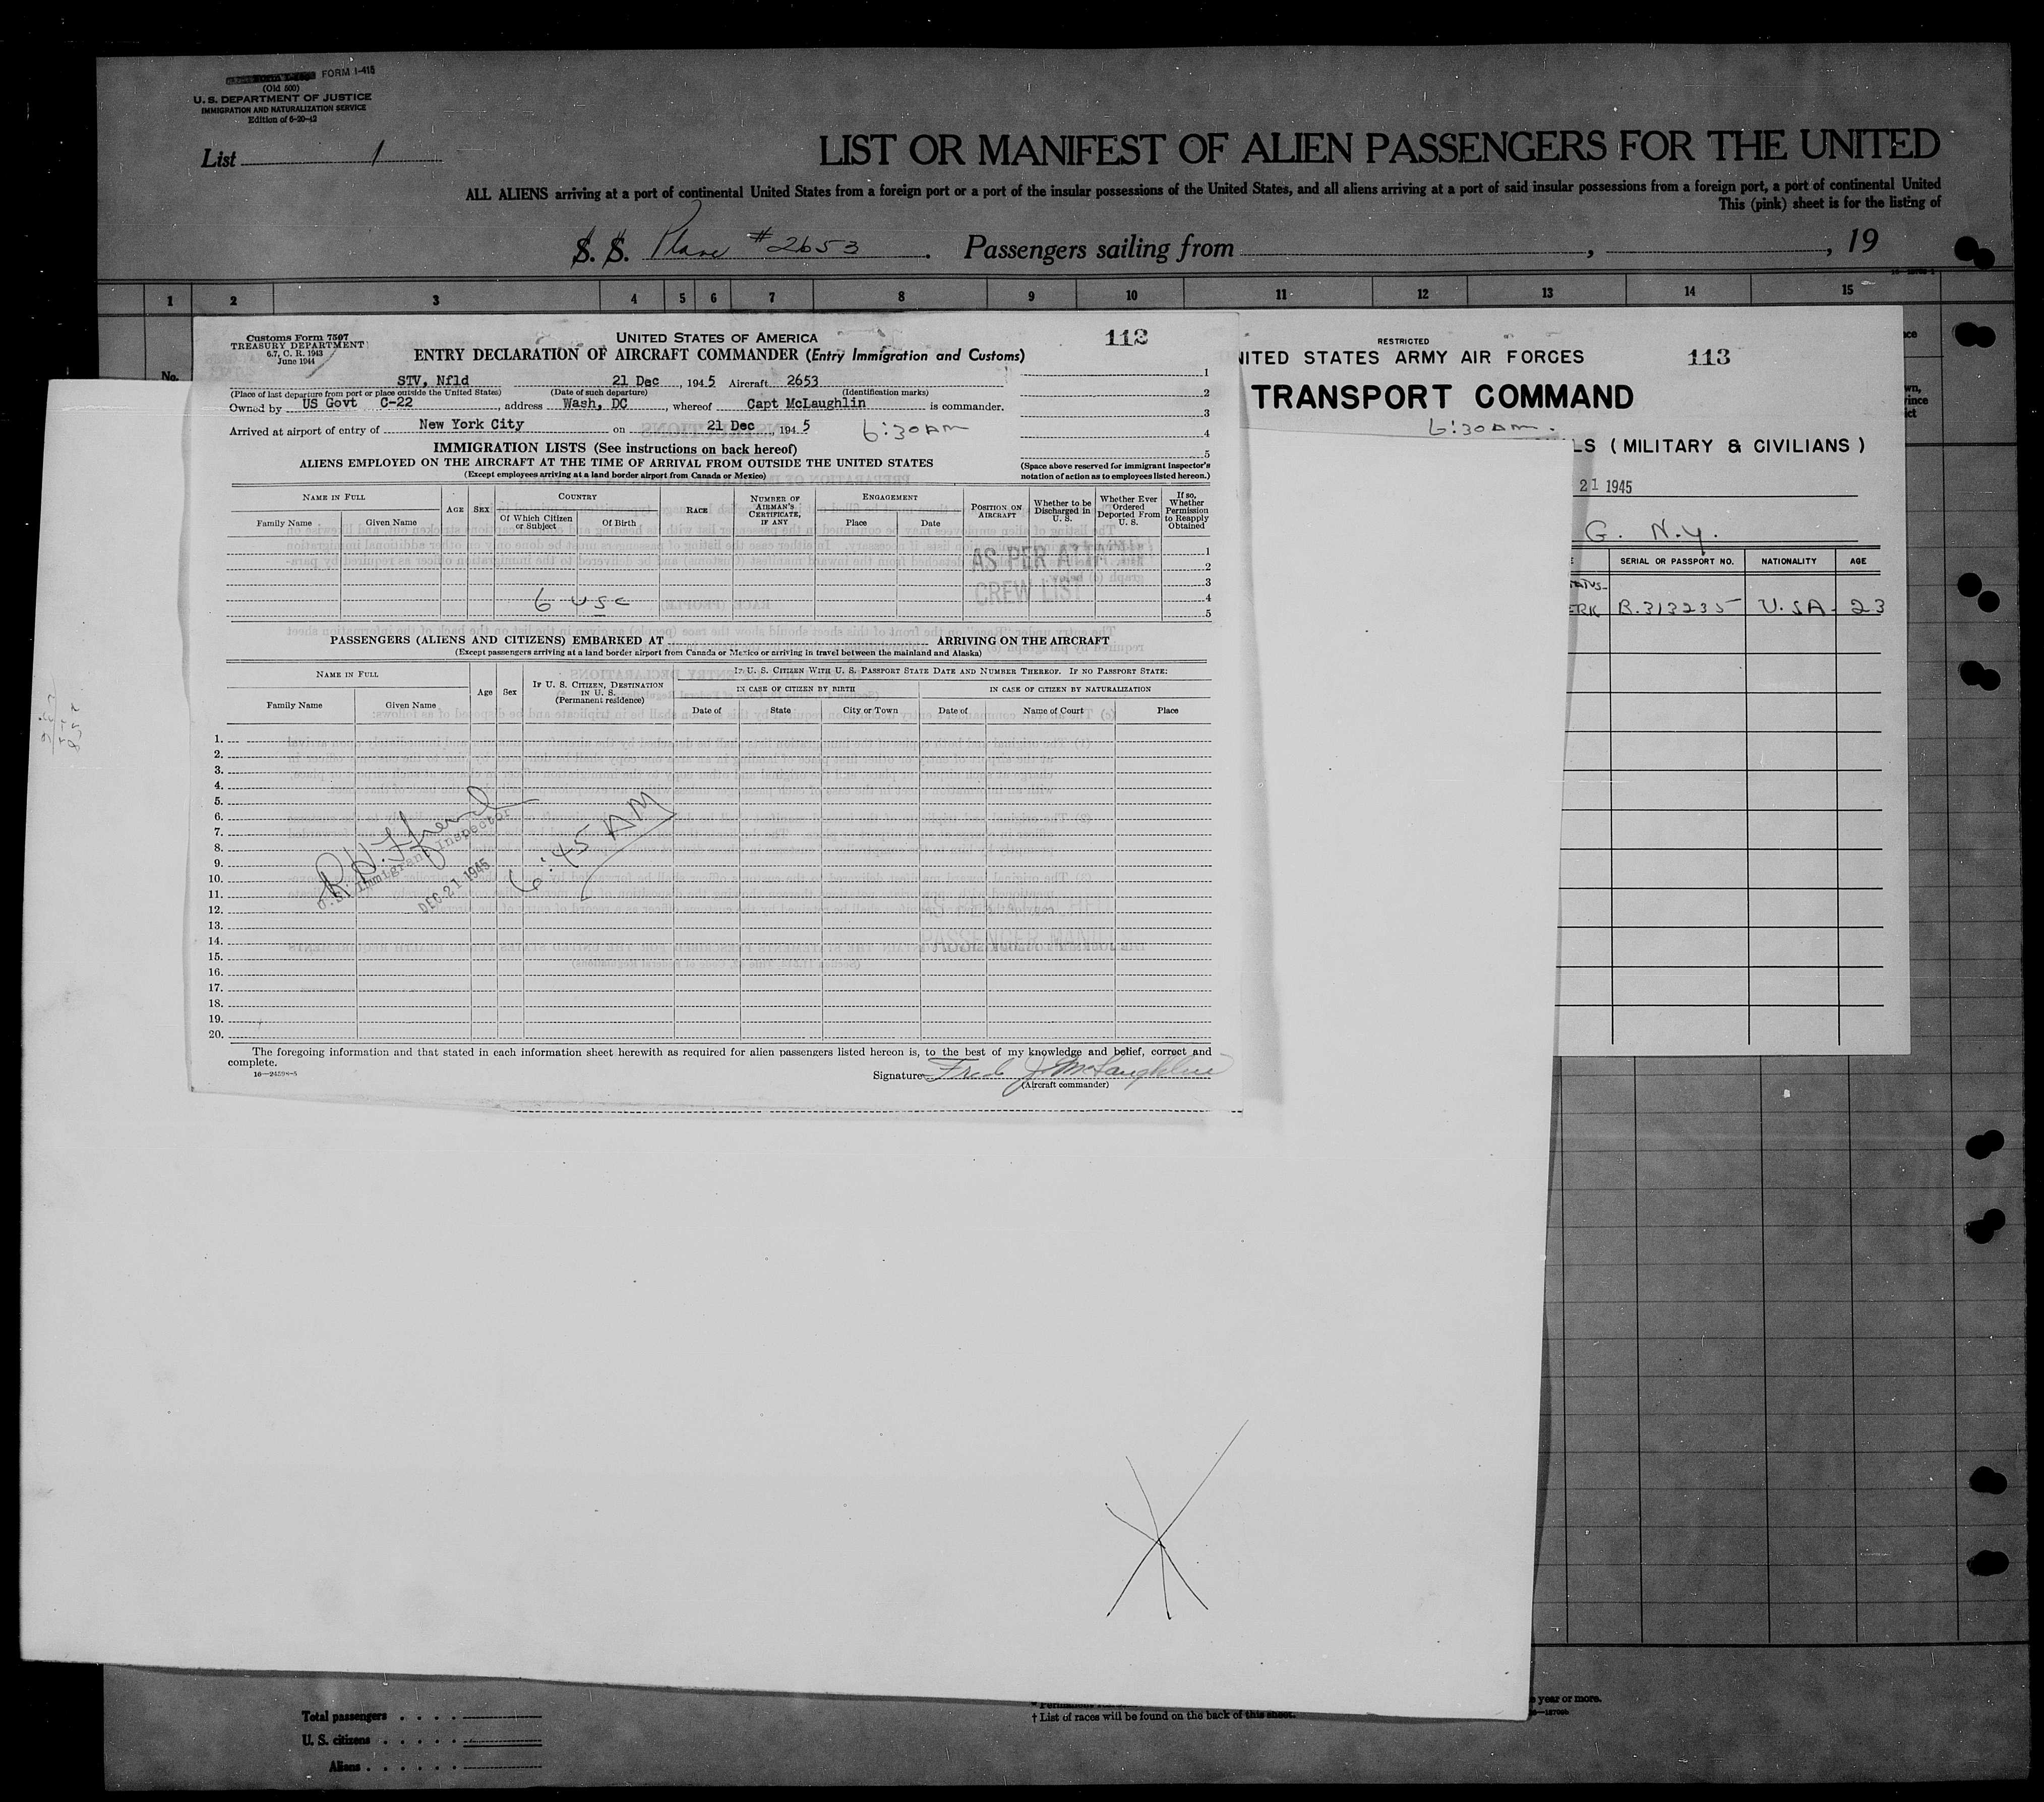 FORM I-415
(Old 500)
U. S. DEPARTMENT OF JUSTICE
IMMIGRATION AND NATURALIZATION SERVICE
Edition of 6-20-42
List 1
LIST OR MANIFEST OF ALIEN PASSENGERS FOR THE UNITED
ALL ALIENS arriving at a port of continental United States from a foreign port or a port of the insular possessions of the United States, and all aliens arriving at a port of said insular possessions from a foreign port, a port of continental United
This (pink) sheet is for the listing of
S. S. Plane # 2653. Passengers sailing from , , 19
1 2 3 4 5 6 7 8 9 10 11 12 13 14 15
No.
Customs Form 7507
TREASURY DEPARTMENT
6.7, C. R. 1943
June 1944
UNITED STATES OF AMERICA
112
ENTRY DECLARATION OF AIRCRAFT COMMANDER (Entry Immigration and Customs)
STV, Nfld 21 Dec, 1945 Aircraft 2653
(Place of last departure from port or place outside the United States) (Date of such departure) (Identification marks)
Owned by US Govt C-22, address Wash, DC, whereof Capt McLaughlin is commander.
Arrived at airport of entry of New York City on 21 Dec 1945 6:30AM
1
2
3
4
5
IMMIGRATION LISTS (See instructions on back hereof)
ALIENS EMPLOYED ON THE AIRCRAFT AT THE TIME OF ARRIVAL FROM OUTSIDE THE UNITED STATES
(Except employees arriving at a land border airport from Canada or Mexico)
(Space above reserved for immigrant inspector's notation of action as to employees listed hereon.)
NAME IN FULL
Family Name Given Name
AGE SEX
COUNTRY
Of Which Citizen or Subject Of Birth
RACE
NUMBER OF AIRMAN'S CERTIFICATE, IF ANY
ENGAGEMENT
Place Date
POSITION ON AIRCRAFT
Whether to be Discharged in U. S.
Whether Ever Ordered Deported From U. S.
If so, Whether Permission to Reapply Obtained
AS PER
CREW LIST
1
2
3
4
5
6 USC
PASSENGERS (ALIENS AND CITIZENS) EMBARKED AT ARRIVING ON THE AIRCRAFT
(Except passengers arriving at a land border airport from Canada or Mexico or arriving in travel between the mainland and Alaska)
NAME IN FULL
Family Name Given Name
Age Sex
IF U. S. CITIZEN, DESTINATION IN U. S. (Permanent residence)
IF U. S. CITIZEN WITH U. S. PASSPORT STATE DATE AND NUMBER THEREOF. IF NO PASSPORT STATE:
IN CASE OF CITIZEN BY BIRTH IN CASE OF CITIZEN BY NATURALIZATION
Date of State City or Town Date of Name of Court Place
1.
2.
3.
4.
5.
6.
7.
8.
9.
10.
11.
12.
13.
14.
15.
16.
17.
18.
19.
20.
U.S. Immigrant Inspector
DEC 21 1945
6:45 AM
PASSENGER
The foregoing information and that stated in each information sheet herewith as required for alien passengers listed hereon is, to the best of my knowledge and belief, correct and
complete.
16—24598-5
Signature Fred J. McLaughlin
(Aircraft commander)
RESTRICTED
ITED STATES ARMY AIR FORCES
113
TRANSPORT COMMAND
6:30AM.
LS (MILITARY & CIVILIANS)
21 1945
G. N.Y.
SERIAL OR PASSPORT NO. NATIONALITY AGE
ERK B.313235 U.SA- 23
Total passengers
U. S. citizens
Aliens
year or more.
† List of races will be found on the back of this sheet.